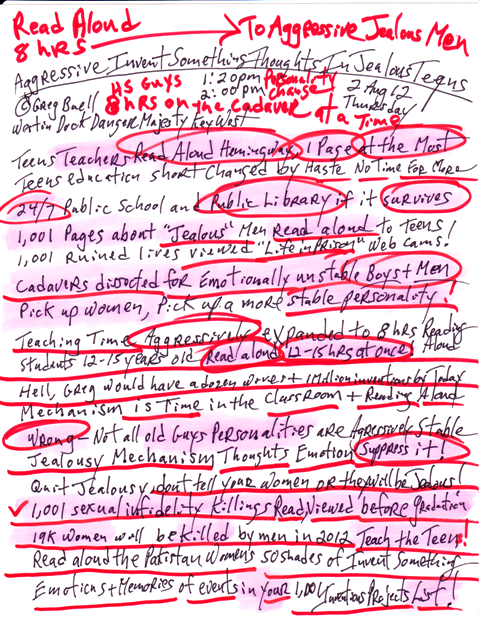 Read Aloud → To Aggressive Jealous Men
8 hRS
Aggressive Invent Something Thoughts In Jealous Teens
HS Guys 1:20pm Personality
© Greg Buell 2:00pm Change 2 Aug 12
8 hRS on the Cadaver at a Time Thursday
Wortin Dock Danger Majesty Key West
Teens Teachers Read Aloud Hemingway, 1 Page at the Most
Teens education short changed by Haste No Time For More
24/7 Public School and Public Library if it survives
1,001 Pages about "Jealous" Men Read aloud to Teens!
1,001 Ruined lives viewed "Life in Prison" Web Cams!
Cadavers dissected for Emotionally unstable Boys + Men
Pick up women, Pick up a more stable personality!
Teaching Time Aggressively expanded to 8 hRs Reading
Students 12-15 years old Read aloud 12-15 hRs at once Aloud
Hell, Greg would have a dozen wives + 1 Million inventions by Today
Mechanism is Time in the Classroom + Reading Aloud
Wrong - Not all old Guys Personalities are Aggressively Stable
Jealousy Mechanism Thoughts Emotion Suppress it!
Quit Jealousy dont tell your women or they will be Jealous!
✓ 1,001 sexual infidelity killings Read, Viewed before graduation
19K women will be killed by men in 2012 Teach the Teens!
Read aloud the Pakistan Womens 50 shades of Invent Something
Emotions + Memories of events in your 1,001 Inventions Projects List!